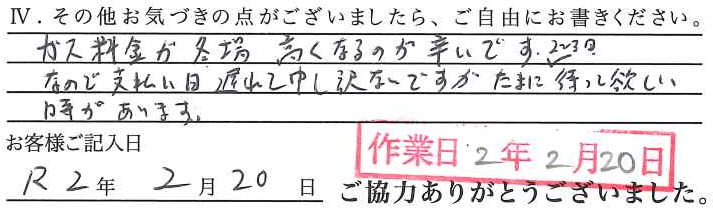 Ⅳ．その他お気づきの点がございましたら、ご自由にお書きください。
ガス料金が冬場 高くなるのが辛いです.2〜3日
なので支払い日遅れて申し訳ないですが たまに待って欲しい
時があります。
お客様ご記入日
作業日 2年 2月20日
R2年 2月20日 ご協力ありがとうございました。